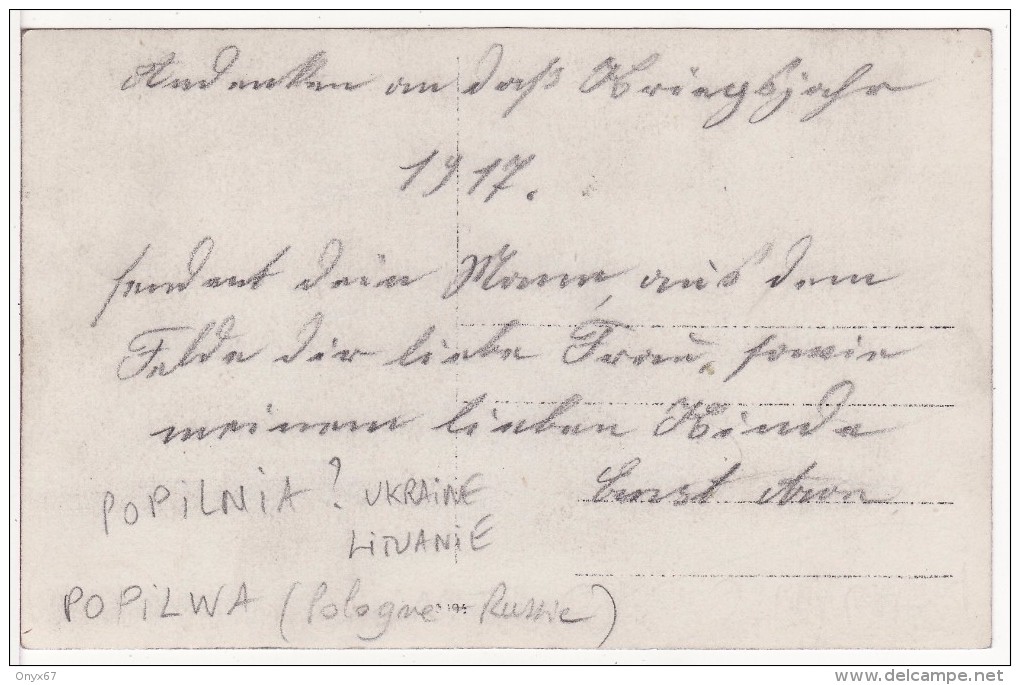 Andenken an daß Kriegsjahr
1917.
sendent dein Mann, aus dem
Felde dir liebe Frau, sowie
meinem lieben Kinde
Ernst
POPiLNiA ? UKRAINE
LiTUANiE
POPiLWA (Pologne - Russie)
Onyx67
www.delcampe.net